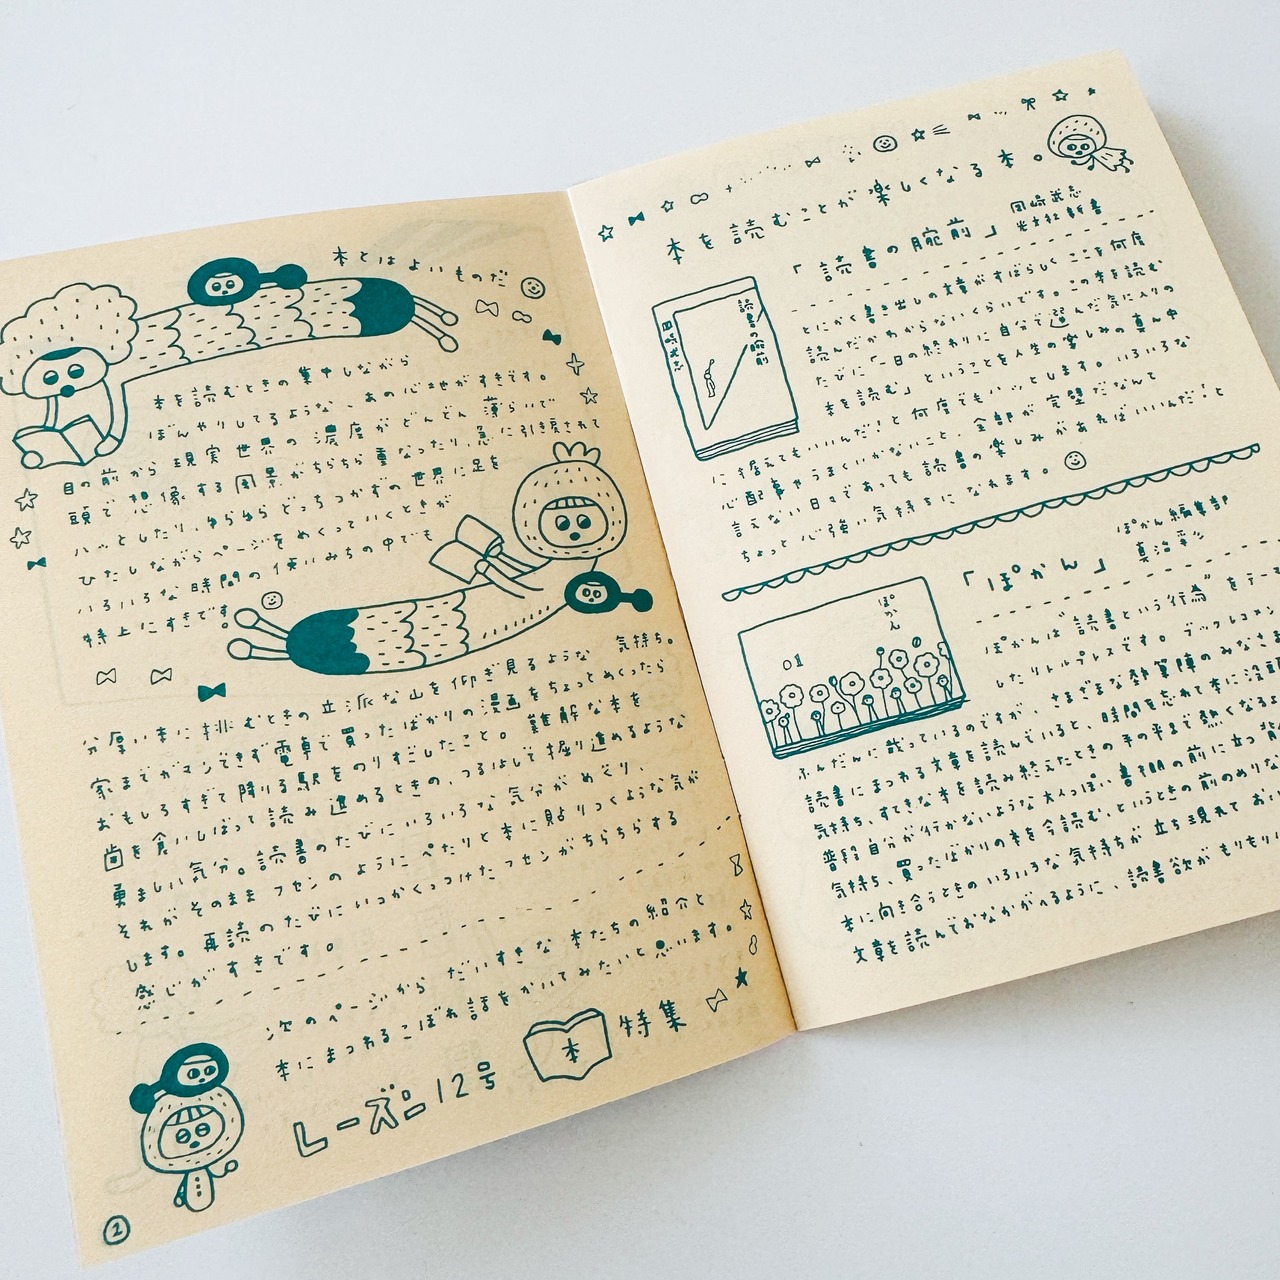 本とはよいものだ
本を読むときの集中しながら
ぼんやりしてるような、あの心地がすきです。
目の前から現実世界の濃度がどんどん薄らいで
頭で想像する風景がちらちら重なったり、急に引き戻されて
ハッとしたり。ゆらゆらどっちつかずの世界に足を
ひたしながらページをめくっていくときが
いろいろな時間の使いみちの中でも
特上にすきです。
分厚い本に挑むときの立派な山を仰ぎ見るような気持ち。
家までガマンできず電車で買ったばかりの漫画をちょっとめくったら
おもしろすぎて降りる駅をのりすごしたこと。難解な本を
歯を食いしばって読み進めるときの、つるはしで掘り進めるような
勇ましい気分。読書のたびにいろいろな気分がめぐり、
それがそのままフセンのようにぺたりと本に貼りつくような気が
します。再読のたびにいつかくっつけたフセンがちらちらする
感じがすきです。
次のページから だいすきな 本たちの紹介と
本にまつわるこぼれ話をかいてみたいと思います。
レーズン12号
本
特集
2
本を読むことが楽しくなる本。
「読書の腕前」
岡崎武志
光文社新書
読書の腕前
岡崎武志
とにかく書き出しの文章がすばらしく ここを何度
読んだかわからないくらいです。この本を読む
たびに「一日の終わりに自分で選んだ気に入りの
本を読む」ということを人生の楽しみの真ん中
に据えてもいいんだ!と何度でもハッとします。いろいろな
心配事やうまくいかないこと、全部が完璧だなんて
言えない日々であっても読書の楽しみがあればいいんだ!と
ちょっと心強い気持ちになれます。
「ぽかん」
ぽかん編集部
真治彩
ぽかん
01
ぽかんは"読書という行為"をテー
したリトルプレスです。ブックレコメン
ふんだんに載っているのですが、さまざまな執筆陣のみなさま
読書にまつわる文章を読んでいると、時間を忘れて本に没頭
気持ち、すてきな本を読み終えたときの手の平まで熱くなるよ
普段自分が行かないような大人っぽい書棚の前に立つ背
気持ち、買ったばかりの本を今読む、というときの前のめりな
本に向き合うときのいろいろな気持ちが立ち現れて おい
文章を読んでおなかがへるように、読書欲がもりもり